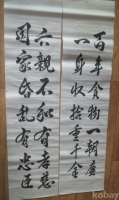 百年貪物一朝塵
一身収拾重千金
六親不和有孝慈
国家昏乱有忠臣
kobay